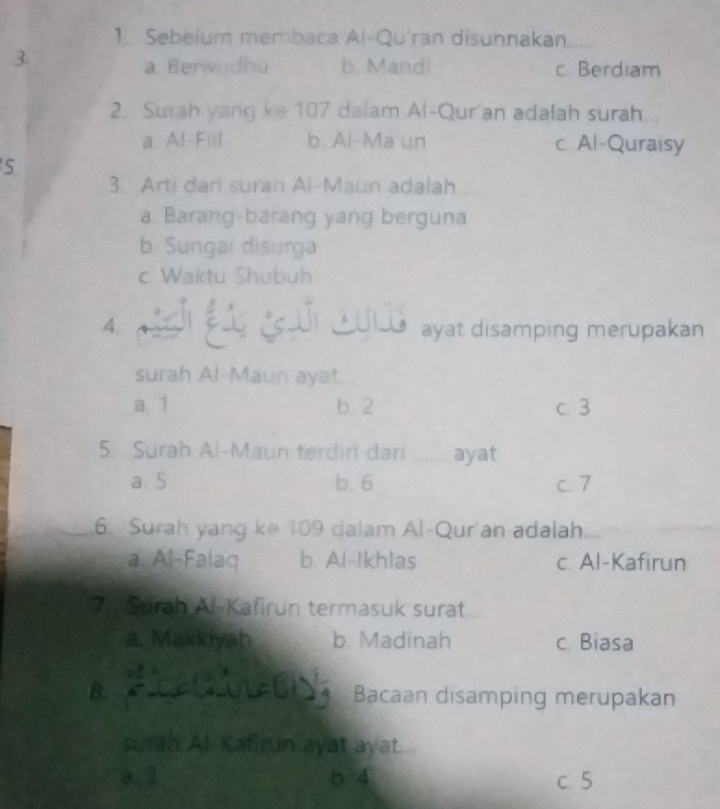 1. Sebelum membaca Al-Qu'ran disunnakan.....
3.
a. Berwudhu b. Mandi c. Berdiam
2. Surah yang ke 107 dalam Al-Qur'an adalah surah...
a. Al-Fiil b. Al-Ma'un c. Al-Quraisy
5
3. Arti dari surah Al-Maun adalah...
a. Barang-barang yang berguna
b. Sungai disurga
c. Waktu Shubuh
4. فَذَالِكَ الَّذِيْ يَدُعُّ الْيَتِيْمَ ayat disamping merupakan
surah Al-Maun ayat...
a. 1 b. 2 c. 3
5. Surah Al-Maun terdiri dari ...... ayat
a. 5 b. 6 c. 7
6. Surah yang ke 109 dalam Al-Qur'an adalah...
a. Al-Falaq b. Al-Ikhlas c. Al-Kafirun
7. Surah Al-Kafirun termasuk surat...
a. Makkiyah b. Madinah c. Biasa
8. وَلَا أَنَا عَابِدٌ مَا عَبَدْتُمْ Bacaan disamping merupakan
surah Al-Kafirun ayat ayat....
a. 3 b. 4 c. 5